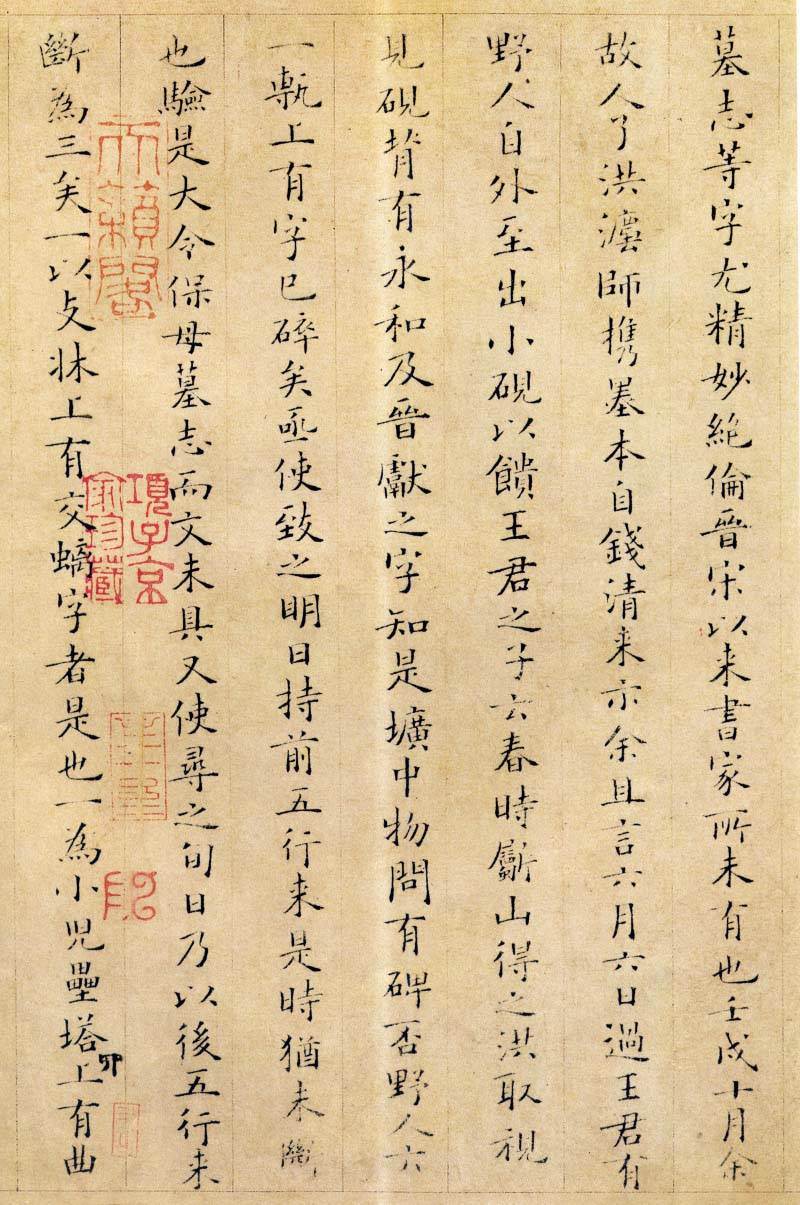 墓志等字尤精妙絶倫晉宋以来書家所未有也壬戌十月余
故人了洪灋師携墨本自錢清来示余且言六月六日過王君有
野人自外至出小硯以饋王君之子云春時斸山得之洪取視
見硯背有永和及晉獻之字知是壙中物問有碑否野人云
一甎上有字已碎矣亟使致之明日持前五行来是時猶未斷
也驗是大令保母墓志而文未具又使尋之旬日乃以後五行来
斷為三矣一以支牀上有交螭字者是也一為小児壘塔上有曲
卯
天籟閣
項子京
家珍藏